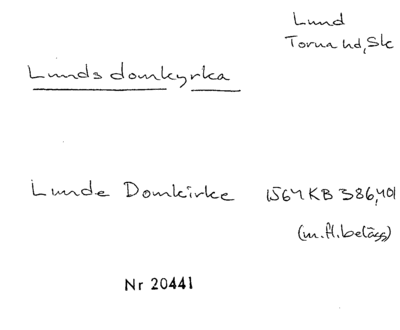 Lund
Torna hd, Sk
Lunds domkyrka
Lunde Domkirke 1564 KB 386,401
(m.fl.belägg)
Nr 20441